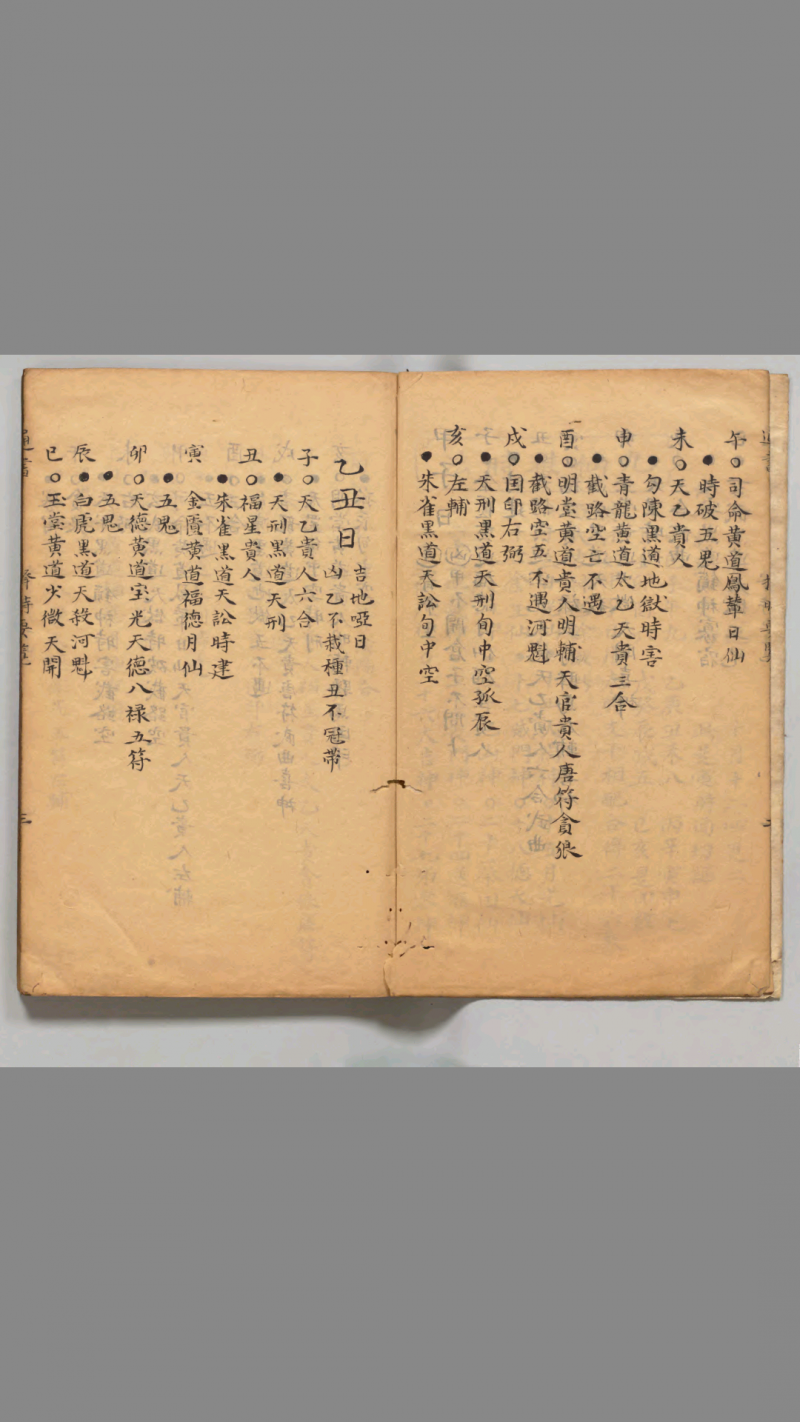 午○司命黄道鳳輦日仙
●時破五鬼
未○天乙貴人
●勾陳黑道地獄時害
申○青龍黄道太乙天貴三合
●截路空亡不遇
酉○明堂黄道貴人明輔天官貴人唐符貪狼
●截路空五不遇河魁
戌○国印右弼
●天刑黑道天刑旬中空孤辰
亥○左輔
●朱雀黑道天訟句中空
乙丑日
吉地啞日
凶乙不栽種丑不冠帶
子○天乙貴人六合
●天刑黑道天刑
丑○福星貴人
●朱雀黑道天訟時建
寅 金匱黄道福德月仙
●五鬼
卯○天德黄道宝光天德八禄五符
●五鬼
辰●白虎黑道天殺河魁
巳○玉堂黄道少微天開
三